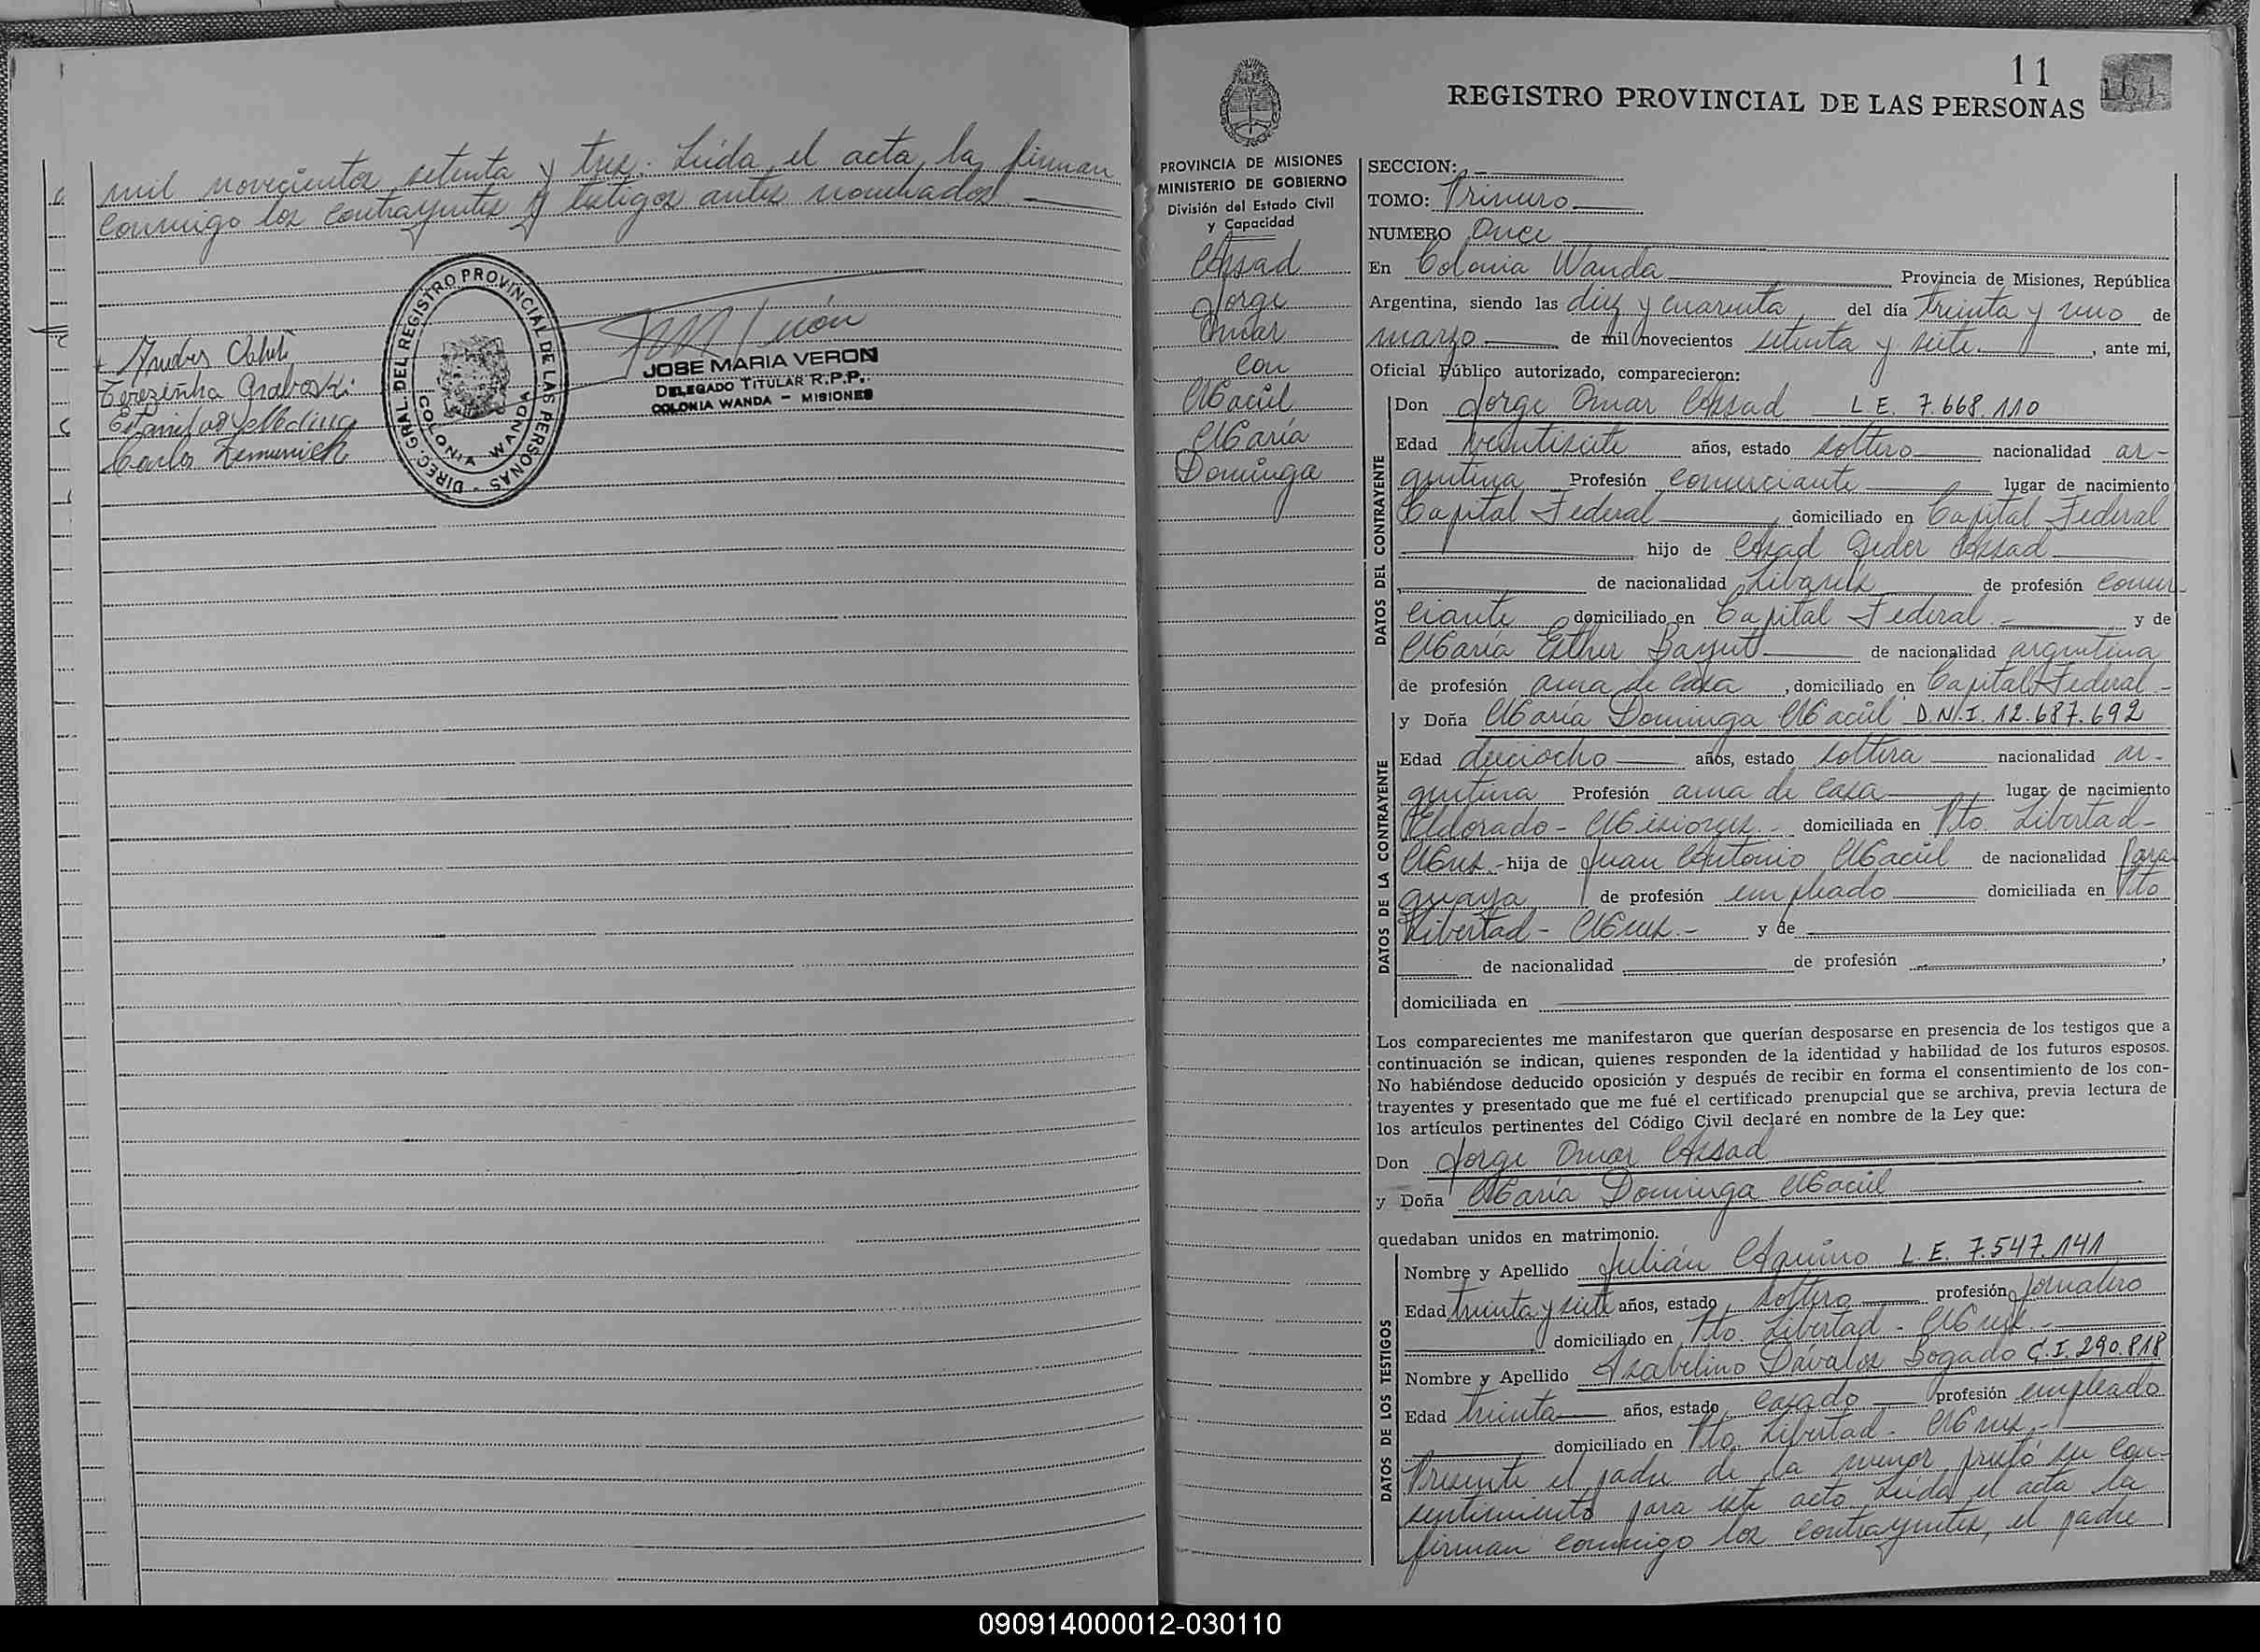 mil novecientos setenta y tres. Leída el acta, la firman
conmigo los contrayentes y testigos antes nombrados
DIREC. GRAL. DEL REGISTRO PROVINCIAL DE LAS PERSONAS -
COLONIA WANDA
JOSE MARIA VERON
DELEGADO TITULAR R.P.P.
COLONIA WANDA - MISIONES
Terezinha Graboski
11
REGISTRO PROVINCIAL DE LAS PERSONAS
PROVINCIA DE MISIONES
MINISTERIO DE GOBIERNO
División del Estado Civil
y Capacidad
Assad
Jorge
Omar
con
Maciel
María
Dominga
SECCION: -
TOMO: Primero
NUMERO Once
En Colonia Wanda Provincia de Misiones, República
Argentina, siendo las diez y cuarenta del día treinta y uno de
marzo de mil novecientos setenta y siete , ante mi,
Oficial Público autorizado, comparecieron:
DATOS DEL CONTRAYENTE
Don Jorge Omar Assad L.E. 7.668.110
Edad veintisiete años, estado soltero nacionalidad ar-
gentina Profesión comerciante lugar de nacimiento
Capital Federal domiciliado en Capital Federal
hijo de Asad Assad
de nacionalidad Libanés de profesión comer
ciante domiciliado en Capital Federal.- y de
María Esther de nacionalidad argentina
de profesión ama de casa , domiciliado en Capital Federal-
DATOS DE LA CONTRAYENTE
y Doña María Dominga Maciel D.N.I. 12.687.692
Edad dieciocho años, estado soltera nacionalidad ar-
gentina Profesión ama de casa lugar de nacimiento
Eldorado - Misiones - domiciliada en Pto. Libertad-
Mnes.- hija de Juan Antonio Maciel de nacionalidad para
guaya de profesión empleado domiciliada en Pto
Libertad - Mnes.- y de
de nacionalidad de profesión ,
domiciliada en
Los comparecientes me manifestaron que querían desposarse en presencia de los testigos que a
continuación se indican, quienes responden de la identidad y habilidad de los futuros esposos.
No habiéndose deducido oposición y después de recibir en forma el consentimiento de los con-
trayentes y presentado que me fué el certificado prenupcial que se archiva, previa lectura de
los artículos pertinentes del Código Civil declaré en nombre de la Ley que:
Don Jorge Omar Assad
y Doña María Dominga Maciel
quedaban unidos en matrimonio.
DATOS DE LOS TESTIGOS
Nombre y Apellido Julián Aquino L.E. 7.547.141
Edad treinta y siete años, estado soltero profesión jornalero
domiciliado en Pto. Libertad - Mnes.-
Nombre y Apellido Isabelino Dávalos Bogado C.I. 290.818
Edad treinta años, estado casado profesión empleado
domiciliado en Pto. Libertad - Mnes.-
Presente el padre de la menor prestó su con-
sentimiento para este acto. Leída el acta la
firman conmigo los contrayentes, el padre
090914000012-030110